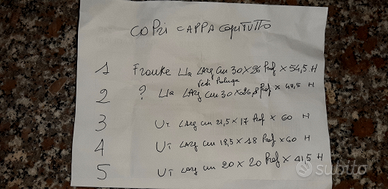 COPRI CAPPA COPRITUTTO
1 Franke Lla LARg cm 30 x 26 Prof x 54,5 H
2 ? Lla LARg cm 30 x 26,8 Prof x 49,5 H
3 Vi LARg cm 21,5 x 17 Prof x 60 H
4 Vi LARg cm 18,5 x 18 Prof x 60 H
5 Vi LARg cm 20 x 20 Prof x 41,5 H
subito